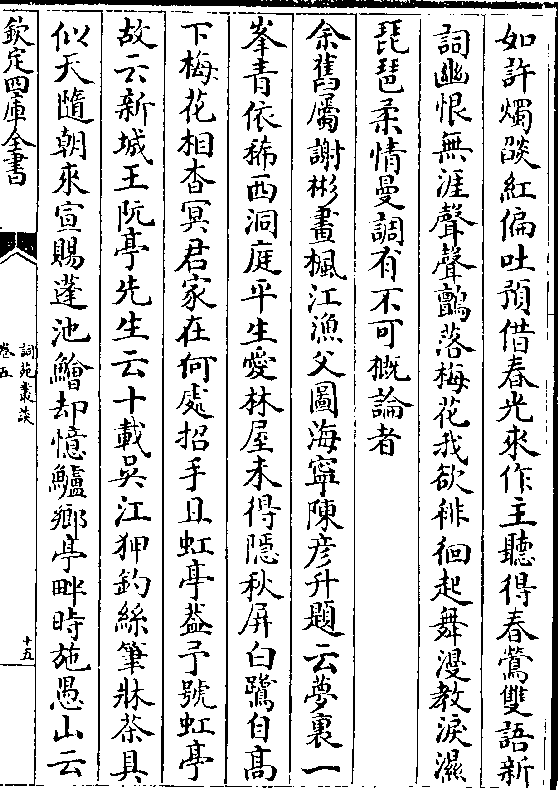 如許燭燄紅偏吐預借春光來作主聽得春鶯雙語新
詞幽恨無涯聲聲鸝落梅花我欲徘徊起舞漫教淚濕
琵琶柔情曼調有不可概論者
余舊屬謝彬畫楓江漁父圖海寧陳彥升題云夢裏一
峯青依稀西洞庭平生愛林屋未得隱秋屏白鷺自高
下梅花相杳冥君家在何處招手且虹亭葢予號虹亭
故云新城王阮亭先生云十載吳江狎釣絲筆牀茶具
似天隨朝來宣賜蓬池鱠却憶鱸鄉亭畔時施愚山云
欽定四庫全書
詞苑叢談
卷五
十五